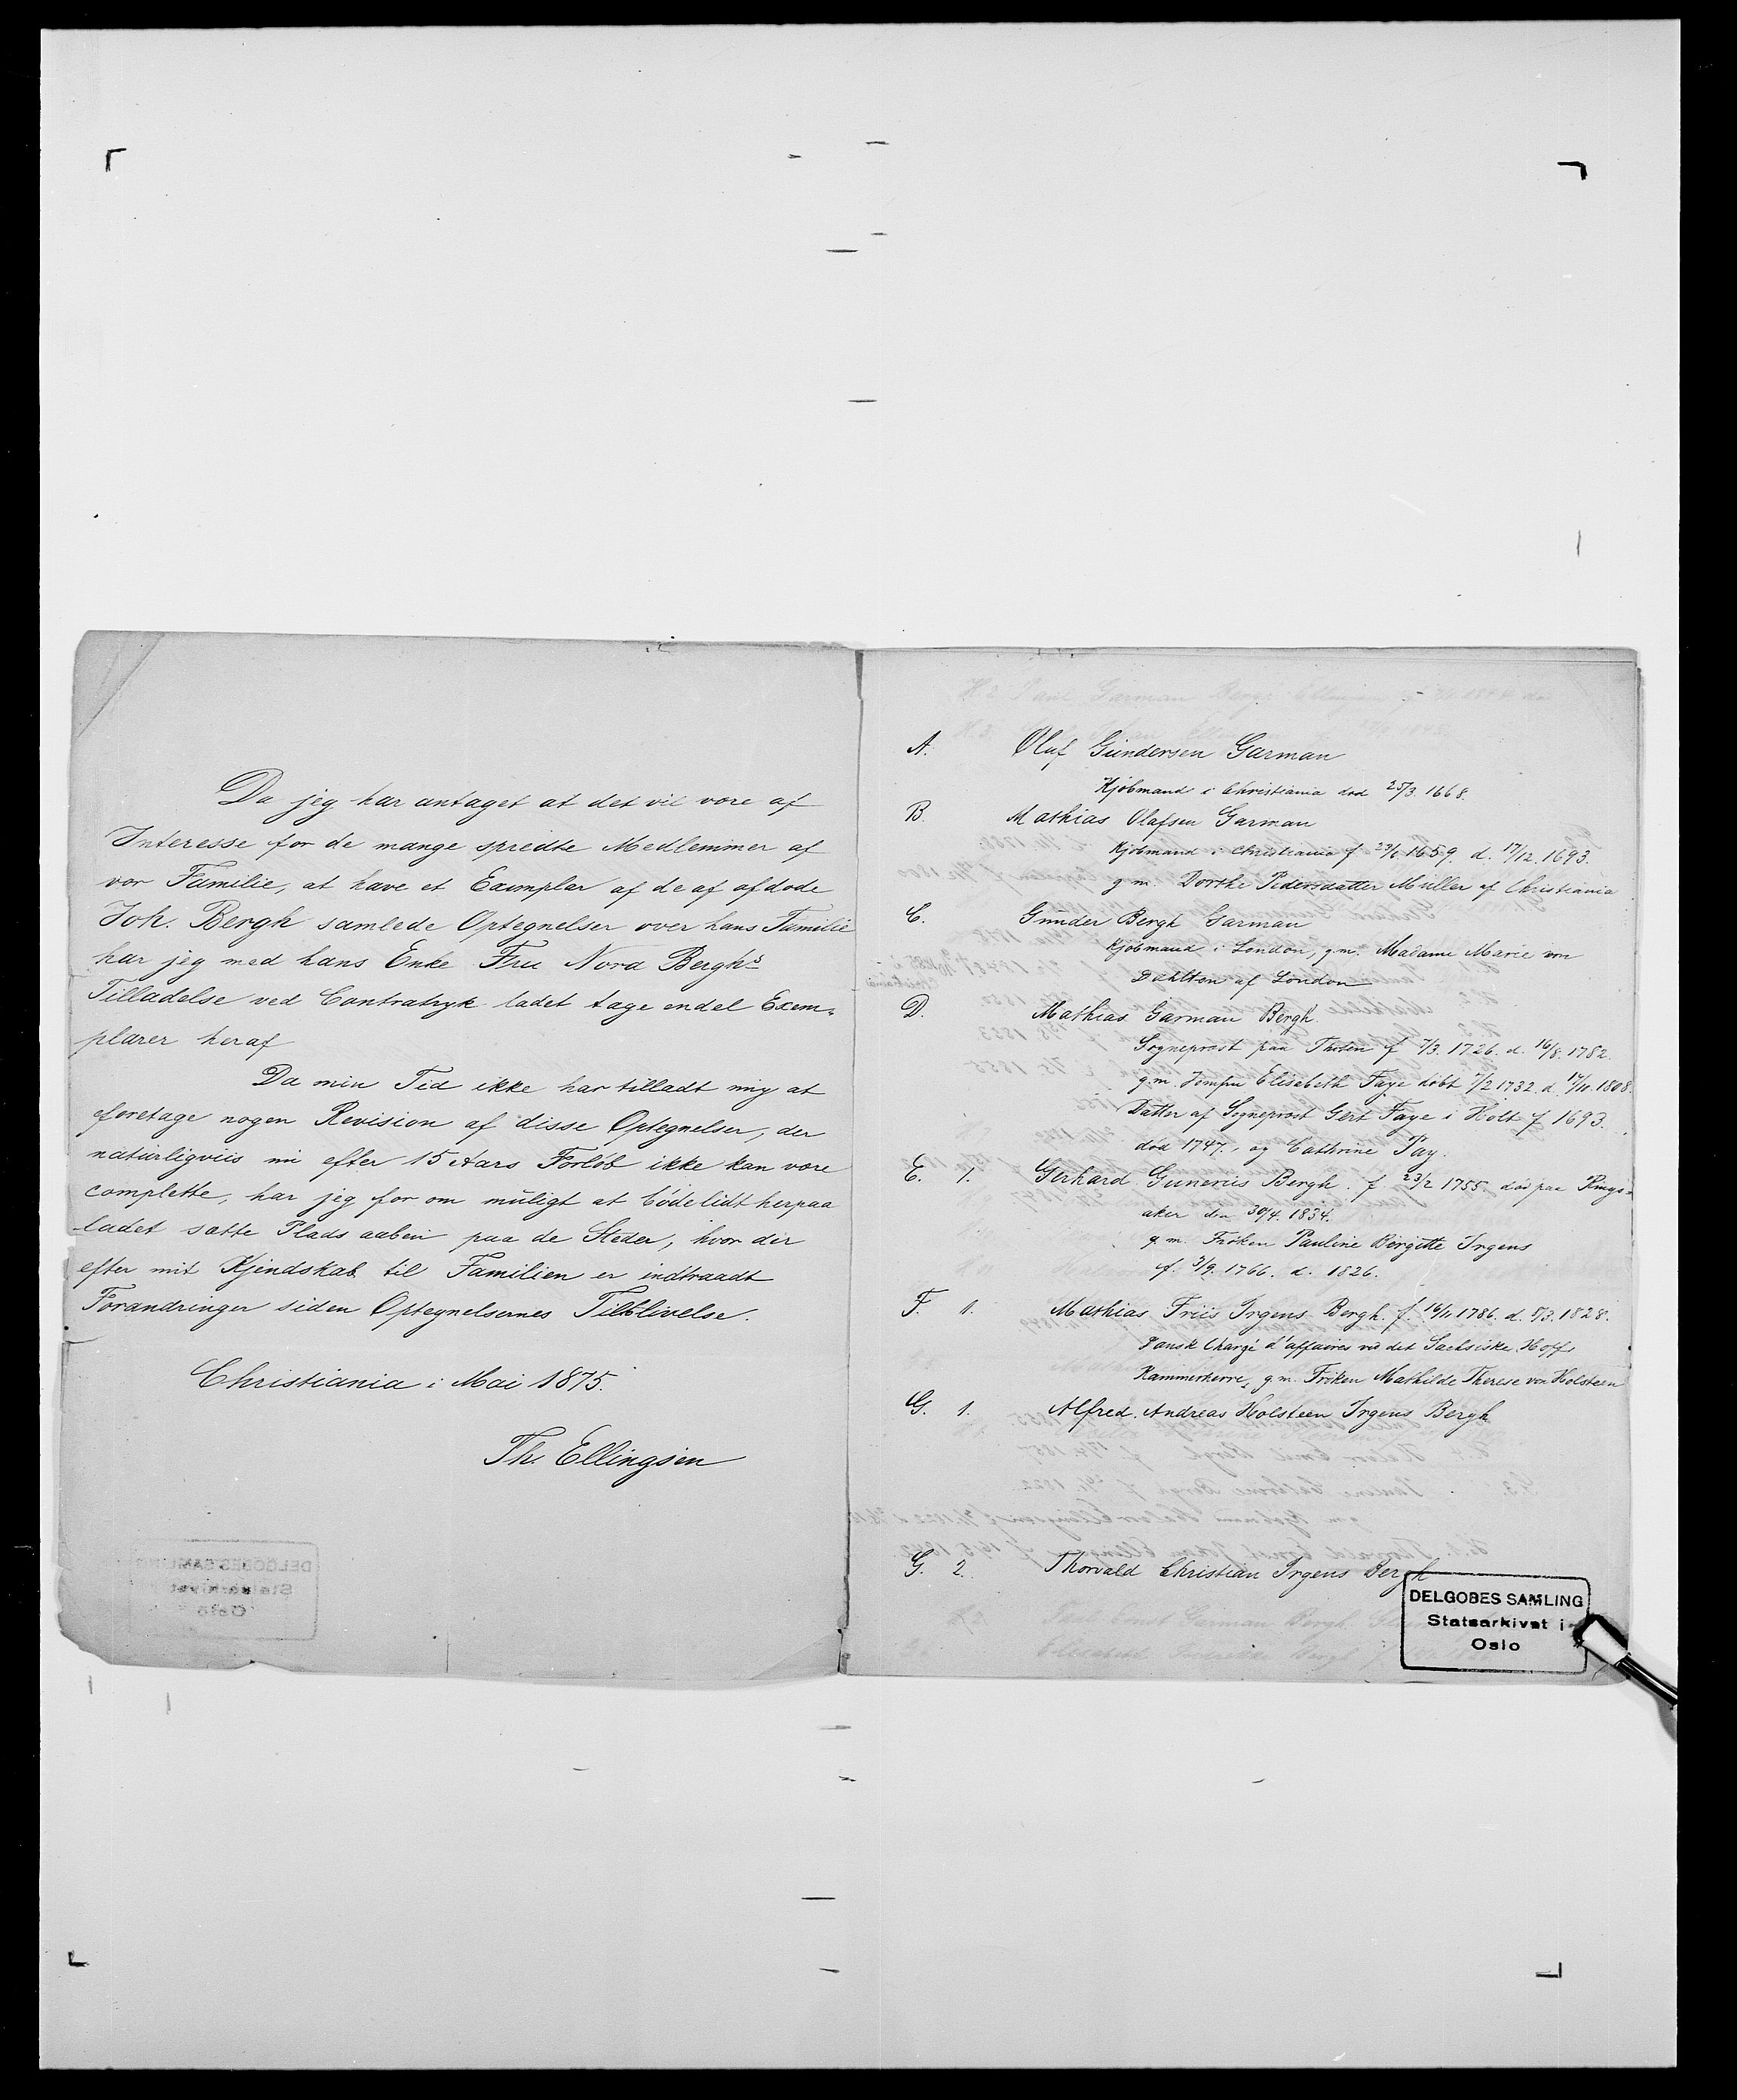 Da jeg har antaget at det vil være af
Interesse for de mange spredte Medlemmer af
vor Familie, at have et Exemplar af de af afdøde
Joh. Bergh samlede Optegnelser over hans Familie
har jeg med hans Enke Fru Nora Berghs
Tilladelse ved Contratryk ladet tage endel Exem-
plarer heraf
Da min Tid ikke har tilladt mig at
foretage nogen Revision af disse Optegnelser, der
naturligviis nu efter 15 Aars Forløb ikke kan være
complette, har jeg for om muligt at bøde lidt herpaa
ladet sætte Plads aaben paa de Steder, hvor der
efter mit Kjendskab til Familien er indtraadt
Forandringer siden Optegnelsernes Tilblivelse.
Christiania i Mai 1875.
Th. Ellingsen
A. Oluf Gundersen Garman
Kjøbmand i Christiania død 25/3. 1668.
B. Mathias Olafsen Garman
Kjøbmand i Christiania f 1659. d. 17/12. 1693.
g. m. Dorthe Pedersdatter Müller af Christiania
C. Gunder Bergh Garman
Kjøbmand i London, g. m. Madame Marie von
Dahlten af London
D. Mathias Garman Bergh.
Sogneprest paa Thoten f 7/3. 1726. d. 16/8. 1782.
g. m. Jomfru Elisabeth Faye døbt 7/2 1732. d. 17/11. 1808.
Datter af Sogneprest Gert Faye i Holt f 1693.
død 1747., og Cathrine Pay.
E. 1. Gerhard Gunerius Bergh. f 23/2 1755. død paa Rings-
aker den 30/4. 1834.
g. m. Frøken Pauline Birgitte Irgens
f. 3/9. 1766. d. 1826.
F. 1. Mathias Friis Irgens Bergh. f. 16/11 1786. d. 5/3. 1828.
Dansk Chargé d'affaires ved det Sachsiske Hoff,
Kammerherre, g. m. Frøken Mathilde Therese von Holsteen
G. 1. Alfred Andreas Holsteen Irgens Bergh
G. 2. Thorvald Christian Irgens Bergh
DELGOBES SAMLING
Statsarkivet i
Oslo